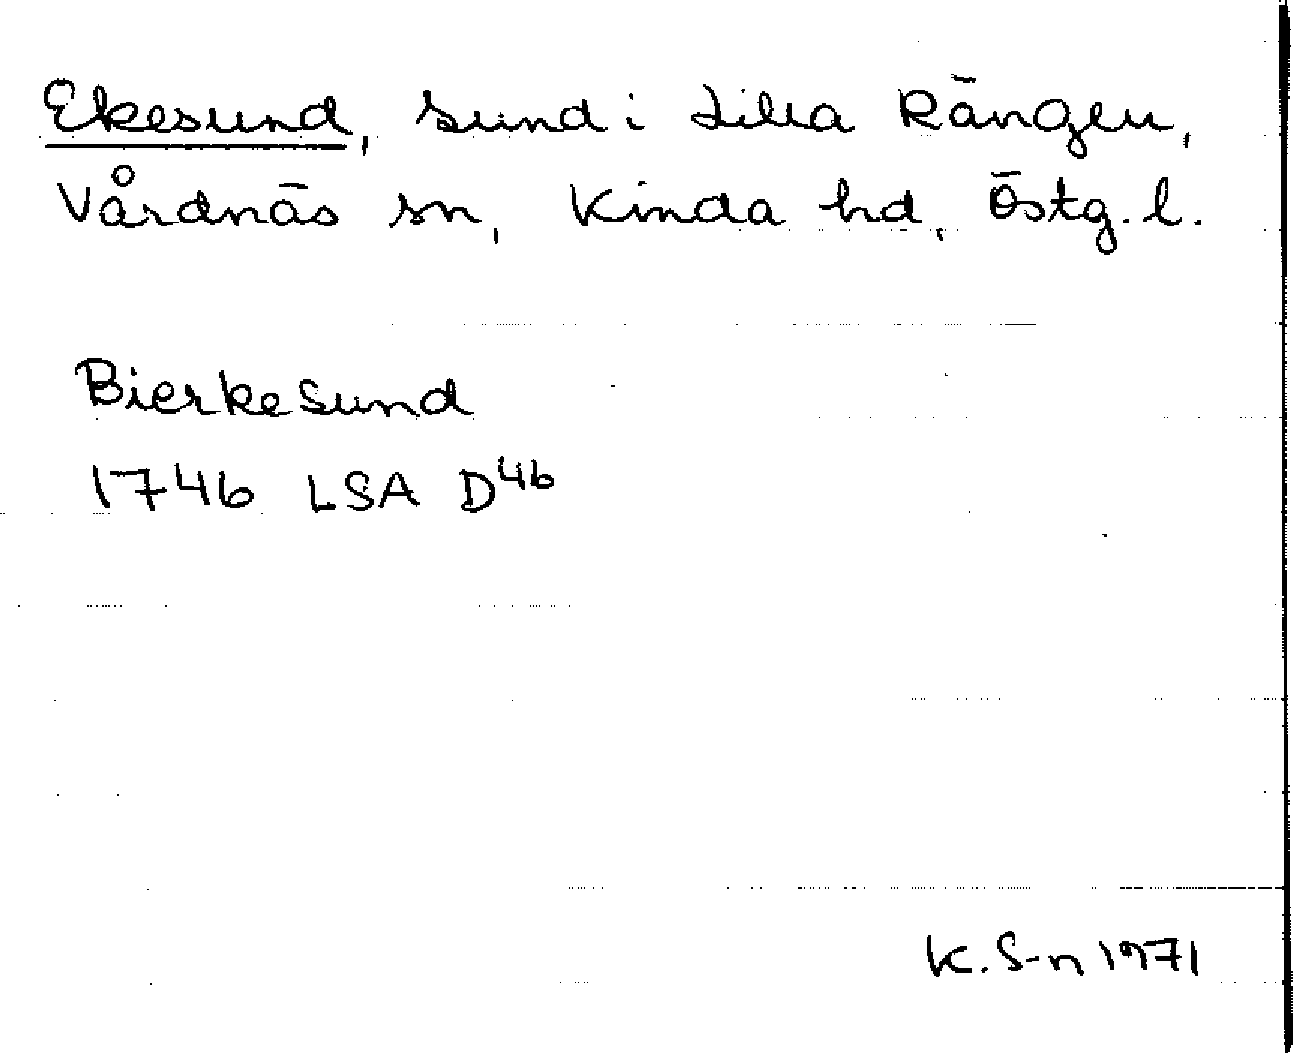 Ekesund, sund i Lilla Rängen,
Vårdnäs sn, Kinda hd, Östg. l.
Bierkesund
1746 LSA D46
K. S-n 1971